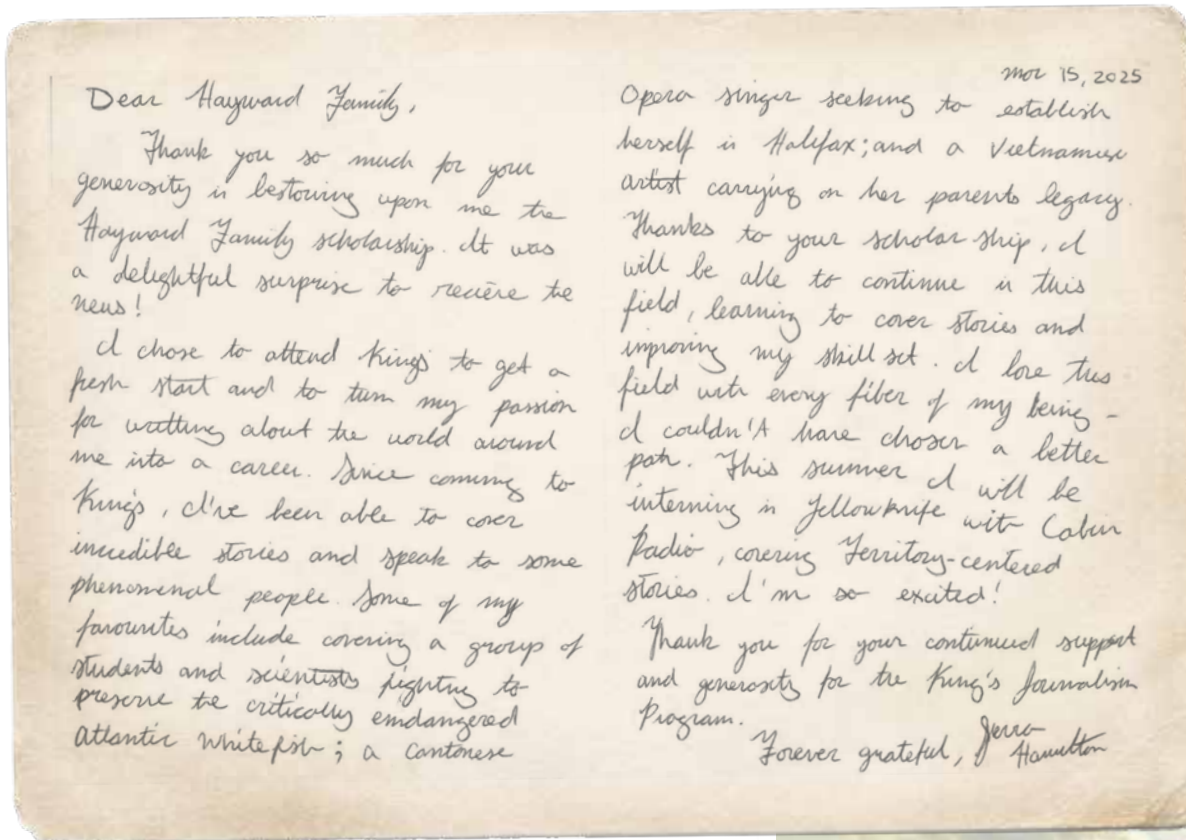 Dear Hayward Family,
Thank you so much for your
generosity in bestowing upon me the
Hayward Family scholarship. It was
a delightful surprise to recieve the
news!
I chose to attend King's to get a
fresh start and to turn my passion
for writting about the world around
me into a career. Since coming to
King's, I've been able to cover
incredible stories and speak to some
phenomenal people. Some of my
favourites include covering a group of
students and scientists fighting to
preserve the critically emdangered
Atlantic Whitefish; a Cantonese
Mar 15, 2025
Opera singer seeking to establish
herself in Halifax; and a Vietnamese
artist carrying on her parents legacy.
Thanks to your scholarship, I
will be able to continue in this
field, learning to cover stories and
improving my skill set. I love this
field with every fiber of my being -
I couldn't have chosen a better
path. This summer I will be
interning in Yellowknife with Cabin
Radio, covering Territory-centered
stories. I'm so excited!
Thank you for your continued support
and generosity for the King's Journalism
Program.
Forever grateful, Jenna
Hamilton